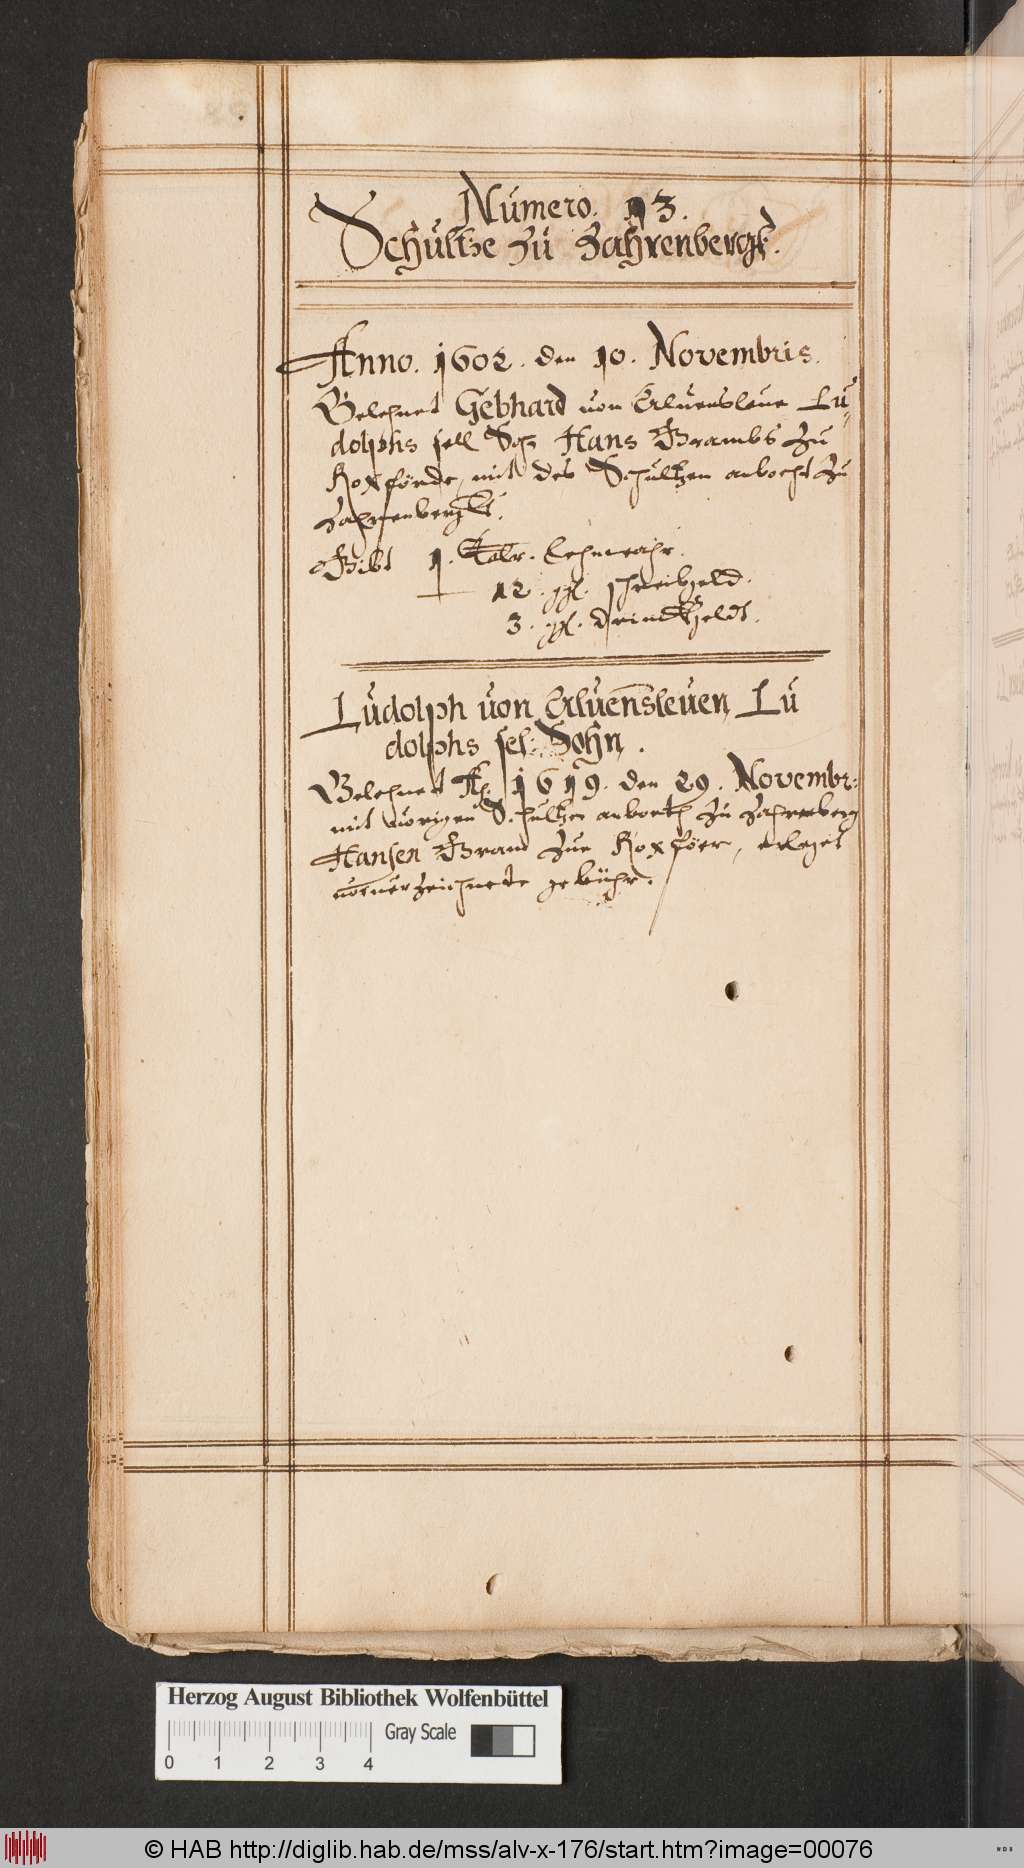 Numero. 13.
Schultze zu Zahrenbergk.
Anno. 1602. den 10. Novembris.
Belehnet Gebhard von Aluensleue Lu
dolphs sell Hans Brambs zu
Roxförde, mit des Schultzen zu
Zahrenbergk.
Gibt 1. Taler. Lehnwahr.
12. ggl. schreibgeld.
3. ggl. drinckgeldt.
Ludolph von Aluensleuen, Lu
dolphs sel: Sohn.
Belehnet Aº. 1619. den 29. Novembr:
mit vorigen Schultzen zu Zahrenberg
Hansen Bram zue Roxföer, erleget
vorverzeichnete gebühr.
Herzog August Bibliothek Wolfenbüttel
Gray Scale
0 1 2 3 4
© HAB http://diglib.hab.de/mss/alv-x-176/start.htm?image=00076